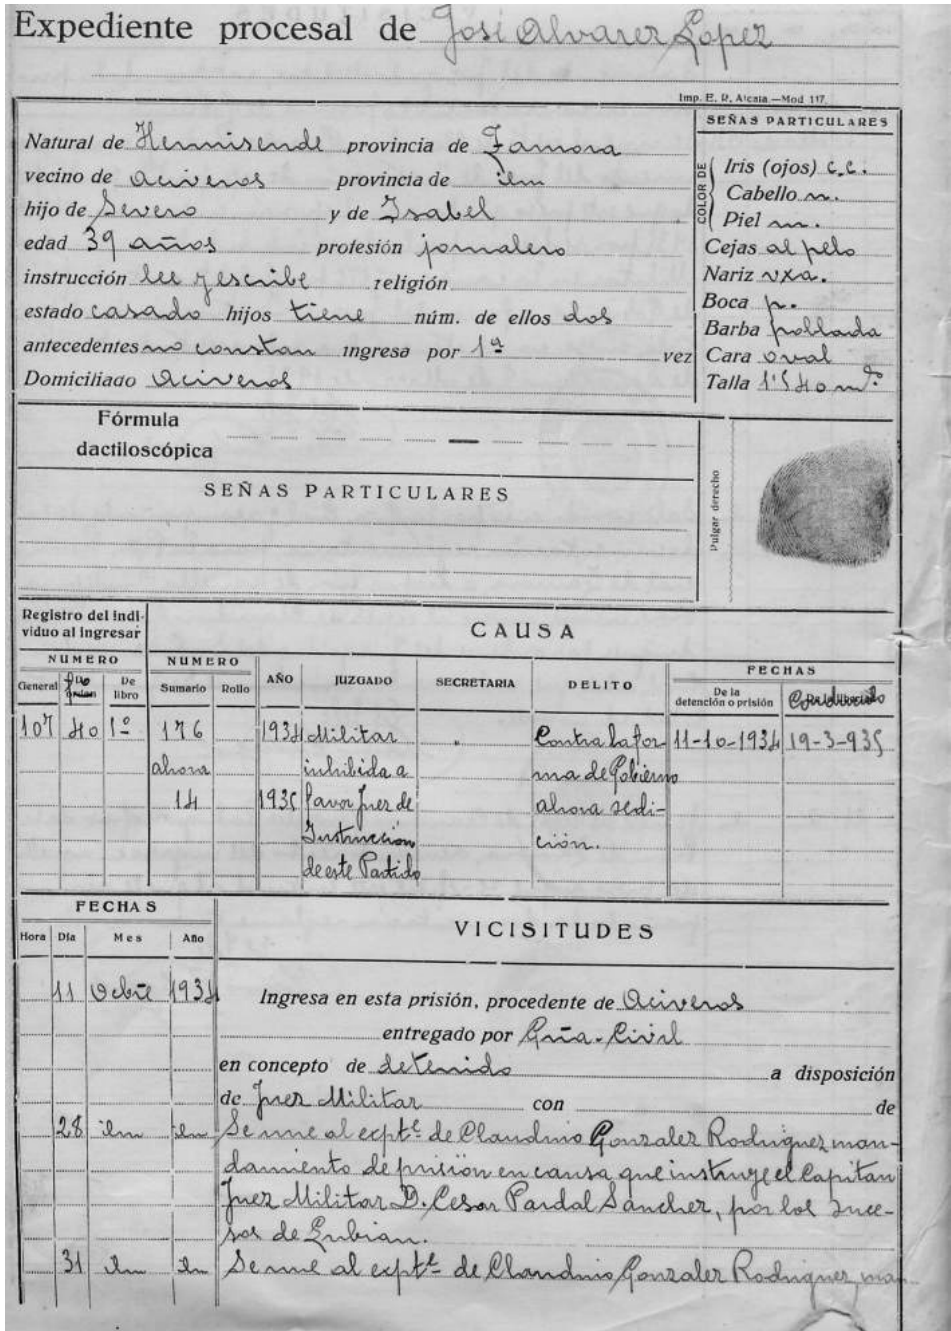 Expediente procesal de José Alvarez López
Imp. E. R. Alcalá.—Mod 117.
Natural de Hermisende provincia de Zamora
vecino de Aciveros provincia de iem
hijo de Severo y de Isabel
edad 39 años profesión jornalero
instrucción lee y escribe religión
estado casado hijos tiene núm. de ellos dos
antecedentes no constan ingresa por 1ª vez
Domiciliado Aciveros
SEÑAS PARTICULARES
COLOR DE
Iris (ojos) c.c.
Cabello n.
Piel m.
Cejas al pelo
Nariz
Boca p.
Barba poblada
Cara oval
Talla 1'540 m
Fórmula
dactiloscópica
SEÑAS PARTICULARES
Pulgar derecho
Registro del indi-
viduo al ingresar
CAUSA
NUMERO NUMERO FECHAS
General De libro Sumario Rollo AÑO JUZGADO SECRETARIA DELITO De la detención o prisión
107 40 1º 176 1934 Militar " Contra la for 11-10-1934 19-3-935
ahora inhibida a ma de Gobierno
14 1935 favor Juez de ahora sedi-
Instrucción ción.
de este Partido
FECHAS
VICISITUDES
Hora Día Mes Año
11 Ocbre 1934 Ingresa en esta prisión, procedente de Aciveros
entregado por Gria. Civil
en concepto de detenido a disposición
de Juez Militar con de
28 iem iem Se une al exptº de Claudino Gonzalez Rodriguez man-
damiento de prisión en causa que instruye el Capitan
Juez Militar D. Cesar Pardal Sanchez, por los suce-
sos de Lubian.
31 iem iem Se une al exptº de Claudino Gonzalez Rodriguez, man